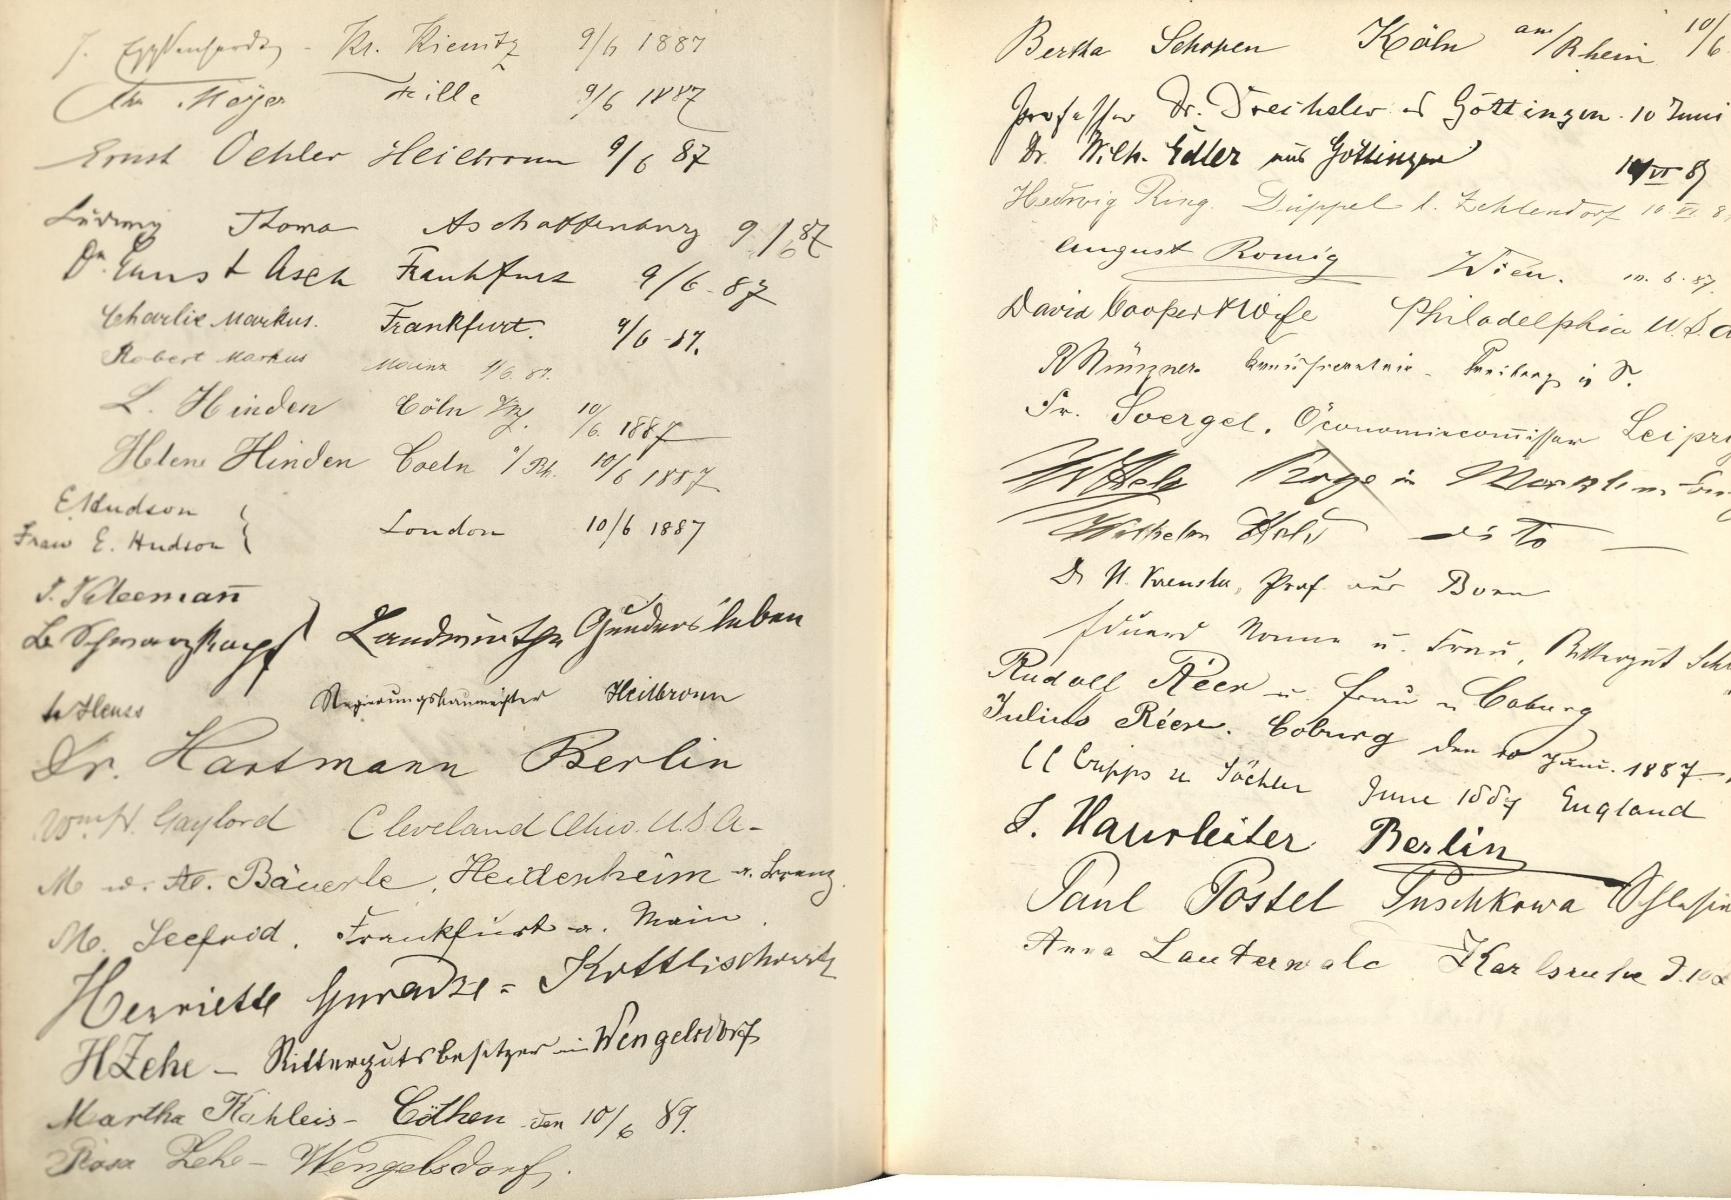 Kr. Kienitz 9/6 1887
Mayer 9/6 1887
Ernst Oehler Heilbronn 9/6 87
Ludwig Thoma Aschaffenburg 9/6 87
Dr. Ernst Asch Frankfurt 9/6 - 87
Charlie Markus. Frankfurt. 9/6 - 87.
Robert Markus Mainz 9/6. 87.
L. Hinden Cöln 10/6. 1887
Helene Hinden Coeln a/Rh. 10/6 1887
E Hudson
Frau E. Hudson London 10/6 1887
T. Kleemann
L. Schwarzkopf Landwirthe Gundersleben
Heuss Regierungsbaumeister Heilbronn
Dr. Hartmann Berlin
Wm. H. Gaylord Cleveland Ohio. U.S.A-
M u. Bäuerle, Heidenheim a. Brenz.
M. Seefrid, Frankfurt a. Main.
Henriette Guradze = Kottlischowitz
H Zehe - Rittergutsbesitzer in Wengelsdorf
Martha Kahleis - Cöthen den 10/6 89.
Rosa Zehe - Wengelsdorf.
Bertha Schopen Köln am/Rhein 10/6
Professor Dr. Drechsler aus Göttingen. 10 Juni
Dr. Wilh. Edler aus Göttingen 10/VI 87
Hedwig Ring. Düppel b. Zehlendorf 10. VI. 8
August Romig Wien. 10. 6. 87.
David Cooper & Wife Philadelphia U.S.A
R Münzner Freiberg i/S.
Fr. Soergel. Öconomiecommissar Leipzig
in
Wilhelm dito
Dr. Prof. aus Bonn
Eduard Nonne u. Frau, Rittergut
Rudolf Réer u. Frau Coburg
Julius Réer. Coburg den 10 Juni. 1887
Cripps u Töchter June 1887 England
S. Haurleiter Berlin
Paul Postel Puschkowa Schlesien
Anna Lauterwald Karlsruhe d. 10